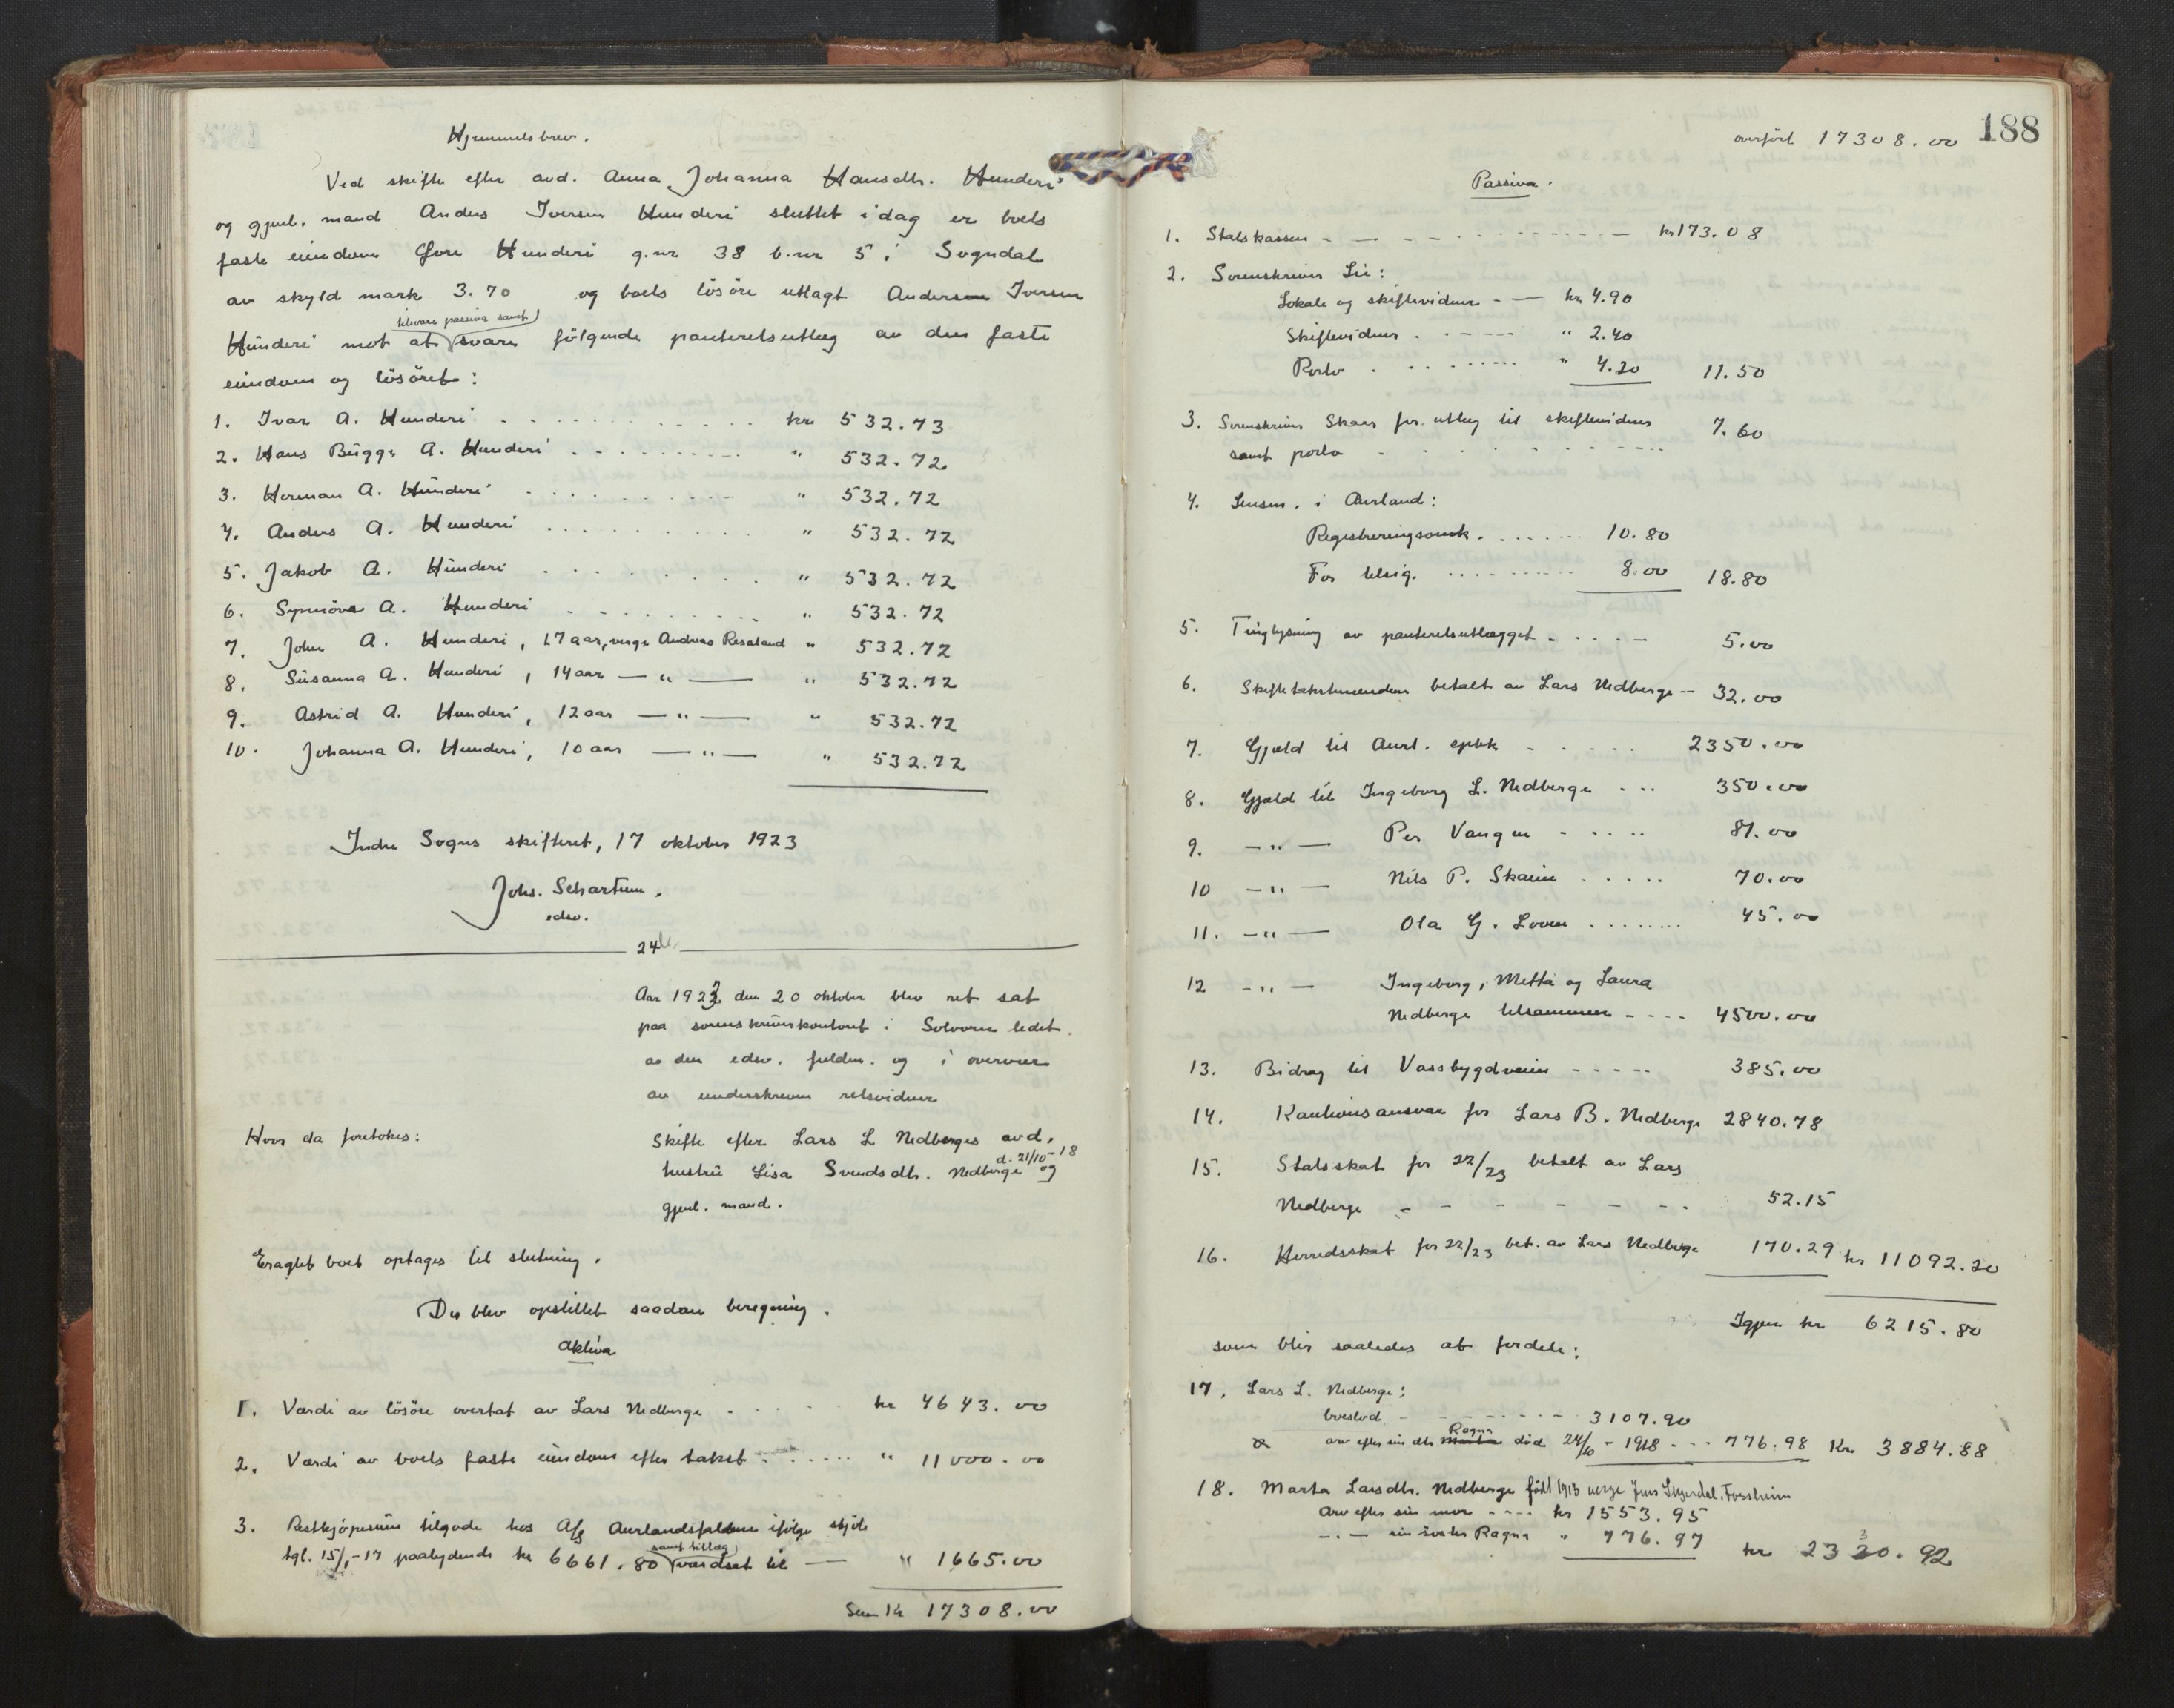 Hjemmelsbrev.
Ved skifte efter avd. Anna Johanna Hansdtr. Hunderi
og gjenl. mand Anders Iversen Hunderi sluttet idag er boets
faste eiendom Øvre Hunderi g.nr 38 b.nr 5 i Sogndal
av skyld mark 3.70 og boets lösöre utlagt Anders Iversen
Hunderi mot at tilsvare passiva samt svare fölgende panteretsutlæg av den faste
eiendom og lösöret:
1. Ivar A. Hunderi kr 532.73
2. Hans Bügge A. Hunderi " 532.72
3. Herman A. Hunderi " 532.72
4. Anders A. Hunderi " 532.72
5. Jakob A. Hunderi " 532.72
6. Synnöva A. Hunderi " 532.72
7. John A. Hunderi, 17 aar, verge Andreas Resaland " 532.72
8. Susanna A. Hunderi, 14 aar — " — " 532.72
9. Astrid A. Hunderi, 12 aar — " — " 532.72
10. Johanna A. Hunderi, 10 aar — " — " 532.72
Indre Sogns skifteret, 17 oktober 1923
Johs. Schartum.
edsv.
24
Aar 1923 den 20 oktober blev ret sat
paa sorenskriverkontoret i Solvorn ledet
av den edsv. fuldm. og i overvær
av underskrevne retsvidner
Hvor da foretokes: Skifte efter Lars L. Nedberges avd.
hustru Lisa Svendsdtr. Nedberge d. 21/10-18 og
gjenl. mand.
Eragtet boet optages til slutning.
Der blev opstillet saadan beregning.
Aktiva
1. Værdi av lösöre overtat av Lars Nedberge kr 4643.00
2. Værdi av boets faste eiendom efter takst " 11000.00
3. Restkjöpesum tilgode hos A/S Aurlandsfaldene ifölge skjöte
tgl. 15/1-17 paalydende kr 6661.80 samt tillæg værdsat til — " 1665.00
Sum Kr 17308.00
188
overfört 17308.00
Passiva.
1. Statskassen kr 173.08
2. Sorenskriver Lie:
Lokale og skiftevidner kr 4.90
Skiftevidner " 2.40
Porto " 4.20 11.50
3. Sorenskriver Skaar for utlæg til skiftevidner 7.60
samt porto
4. Lensm. i Aurland:
Registreringsomk. 10.80
For tilsig. 8.00 18.80
5. Tinglysning av panteretsutlægget 5.00
6. Skiftetakstmændene betalt av Lars Nedberge 32.00
7. Gjæld til Aurl. spbk 2350.00
8. Gjæld til Ingeborg L. Nedberge 350.00
9. — " — Per Vangen 81.00
10 — " — Nils P. Skaim 70.00
11. — " — Ola G. Loven 45.00
12 — " — Ingeborg, Metta og Laura
Nedberge tilsammen 4500.00
13. Bidrag til Vassbygdveien 385.00
14. Kautionsansvar for Lars B. Nedberge 2840.78
15. Statsskat for 22/23 betalt av Lars
Nedberge 52.15
16. Herredsskat for 22/23 bet. av Lars Nedberge 170.29 kr 11092.20
Igjen kr 6215.80
som blir saaledes at fordele:
17. Lars L. Nedberge:
boeslod 3107.90
arv efter sin dtr Marta Ragna död 24/10-1918 776.98 Kr 3884.88
18. Marta Larsdtr. Nedberge født 1913 verge Jens Fossheim
Arv efter sin mor kr 1553.95
— " — sin søster Ragna " 776.97 kr 2330.92